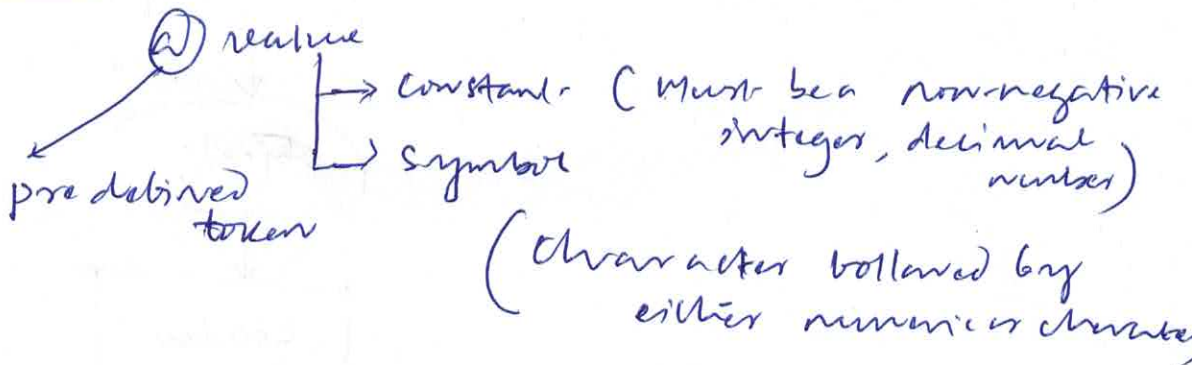 @ value
constant - (Must be a non-negative
integer, decimal
number)
symbol
predefined
token
(Character followed by
either numeric or character)